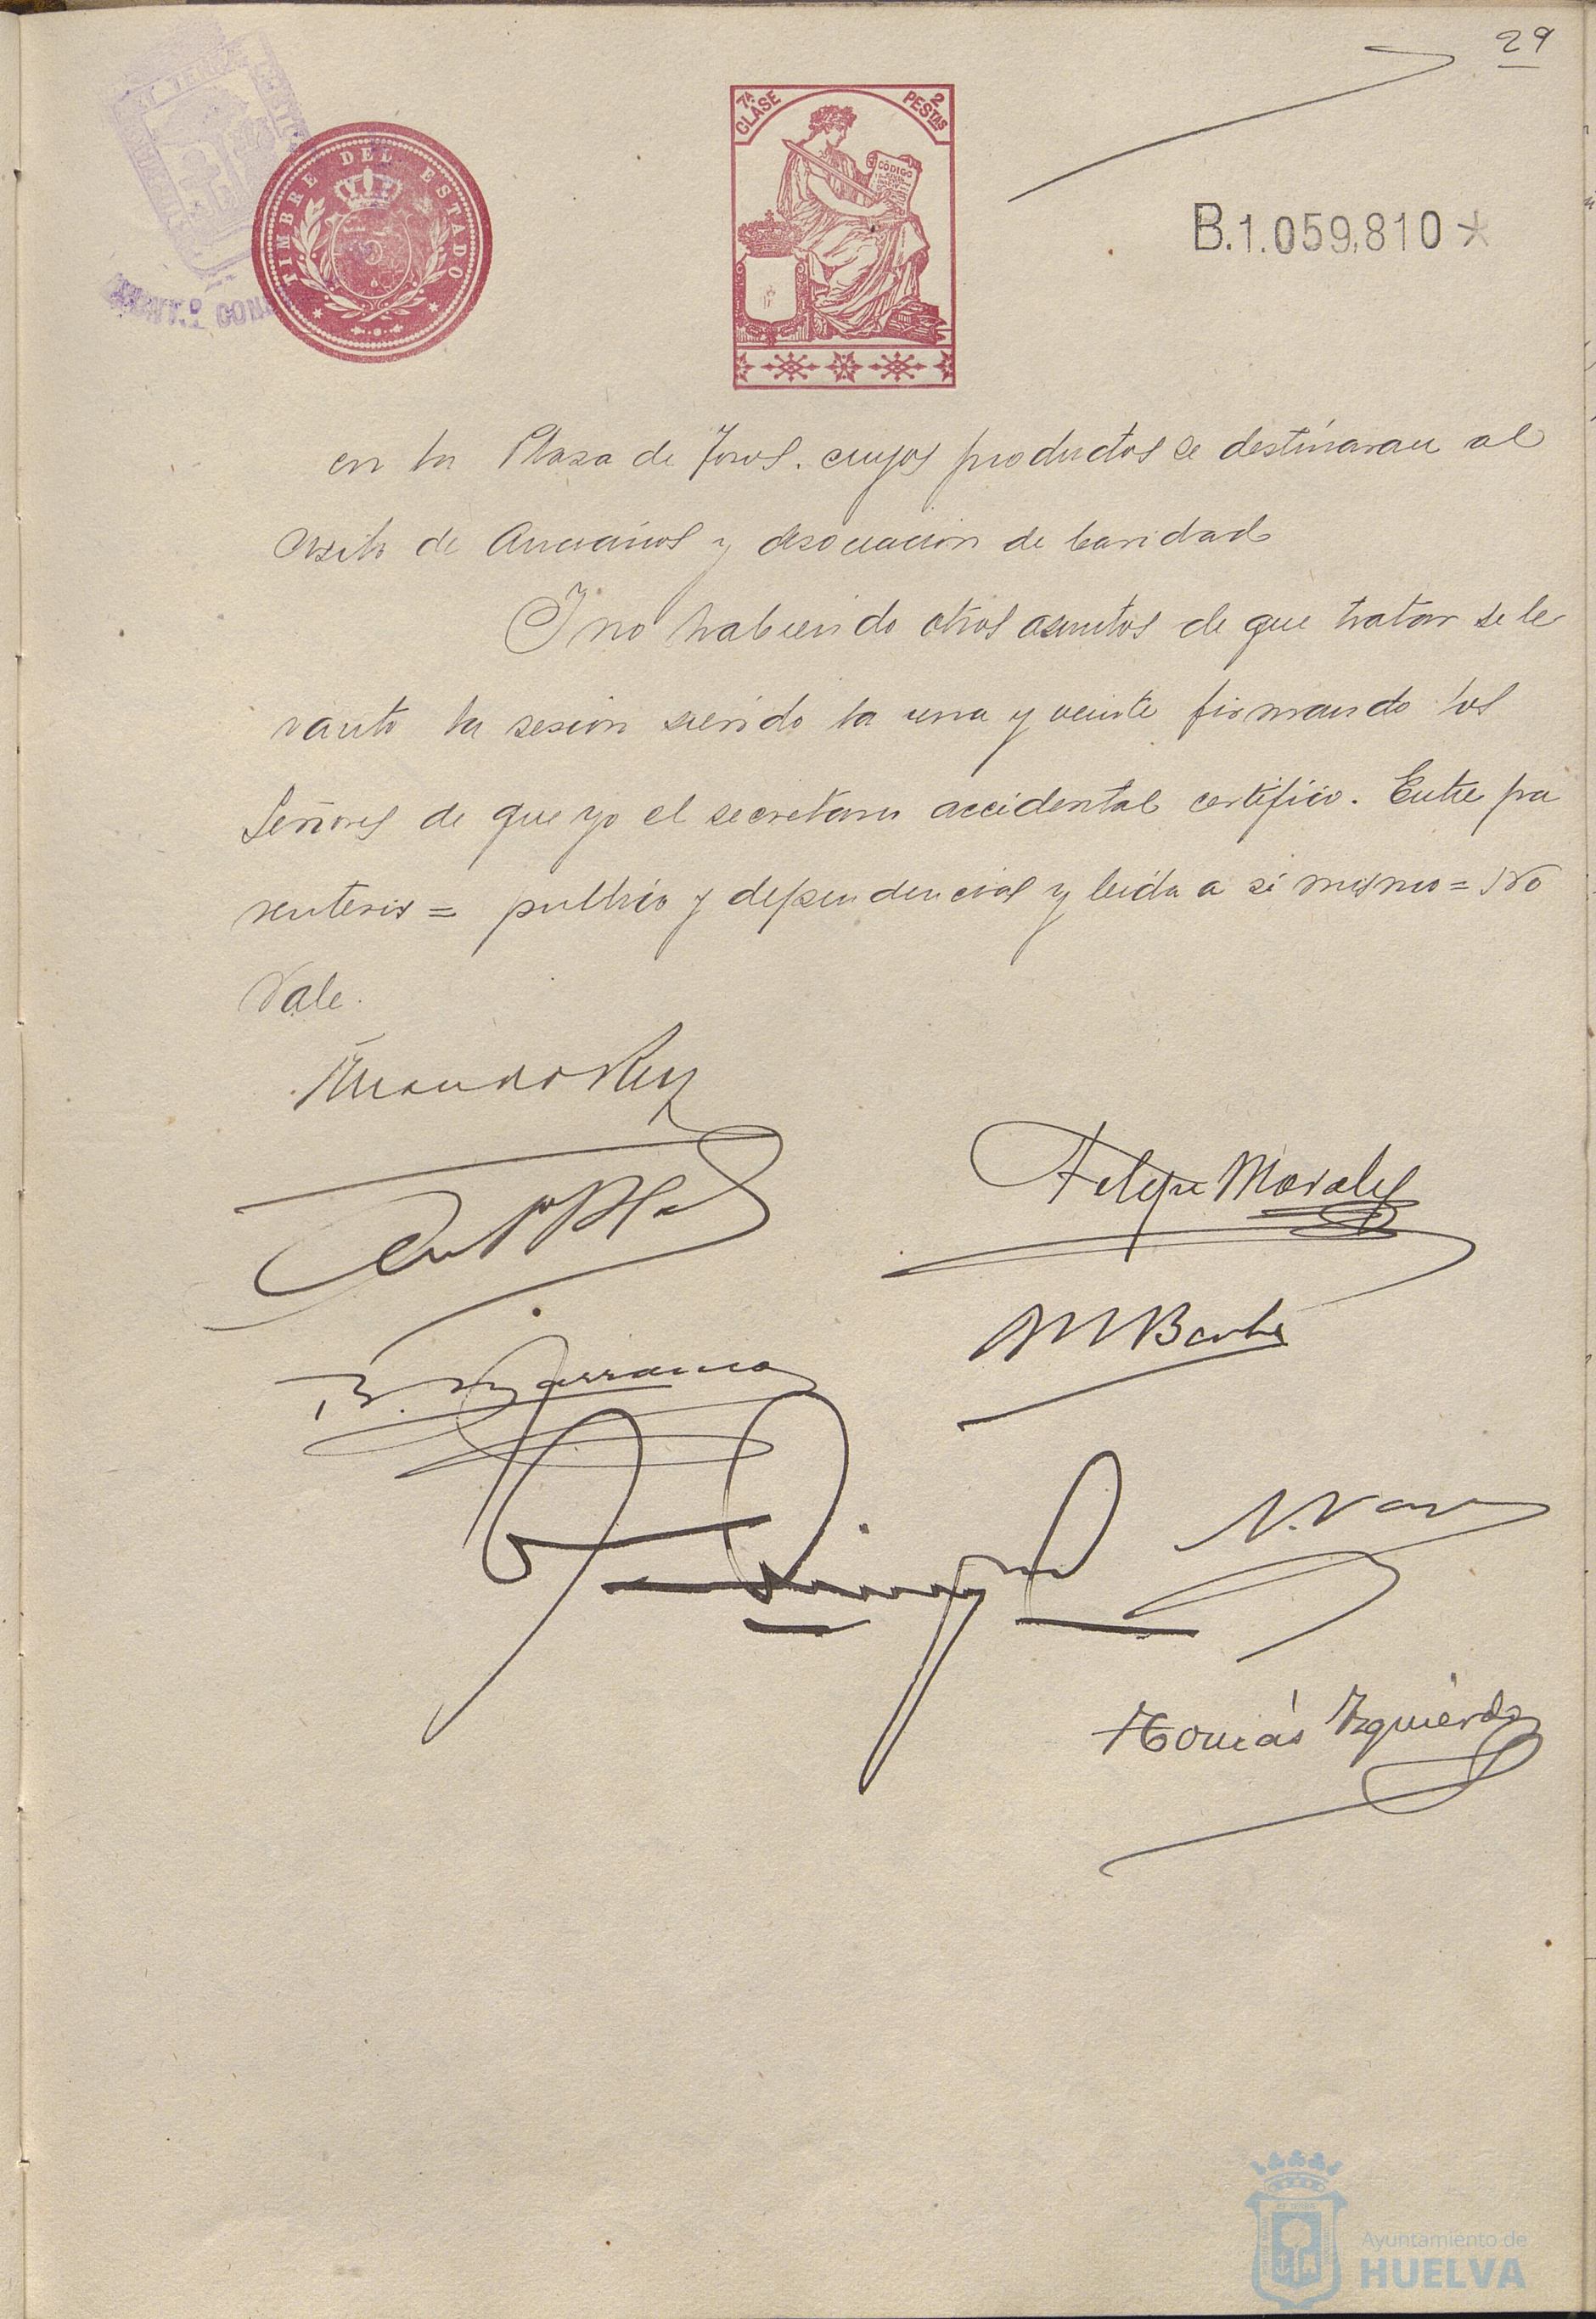 29
TIMBRE DEL ESTADO
7ª CLASE
2 PESTAS
CODIGO
B.1.059,810*
en la Plaza de Toros. cuyos productos se destinaran al
Asilo de Ancianos y Asociacion de Caridad
I no habiendo otros asuntos de que tratar se le
vanto la sesion siendo la una y veinte firmando los
Señores de que yo el secretario accidental certifico. Entre pa
rentesis = publico y dependencias y leida a si mismo = No
Vale.
Felipe Morales
M Barba
Tomás Izquierdo
Ayuntamiento de
HUELVA